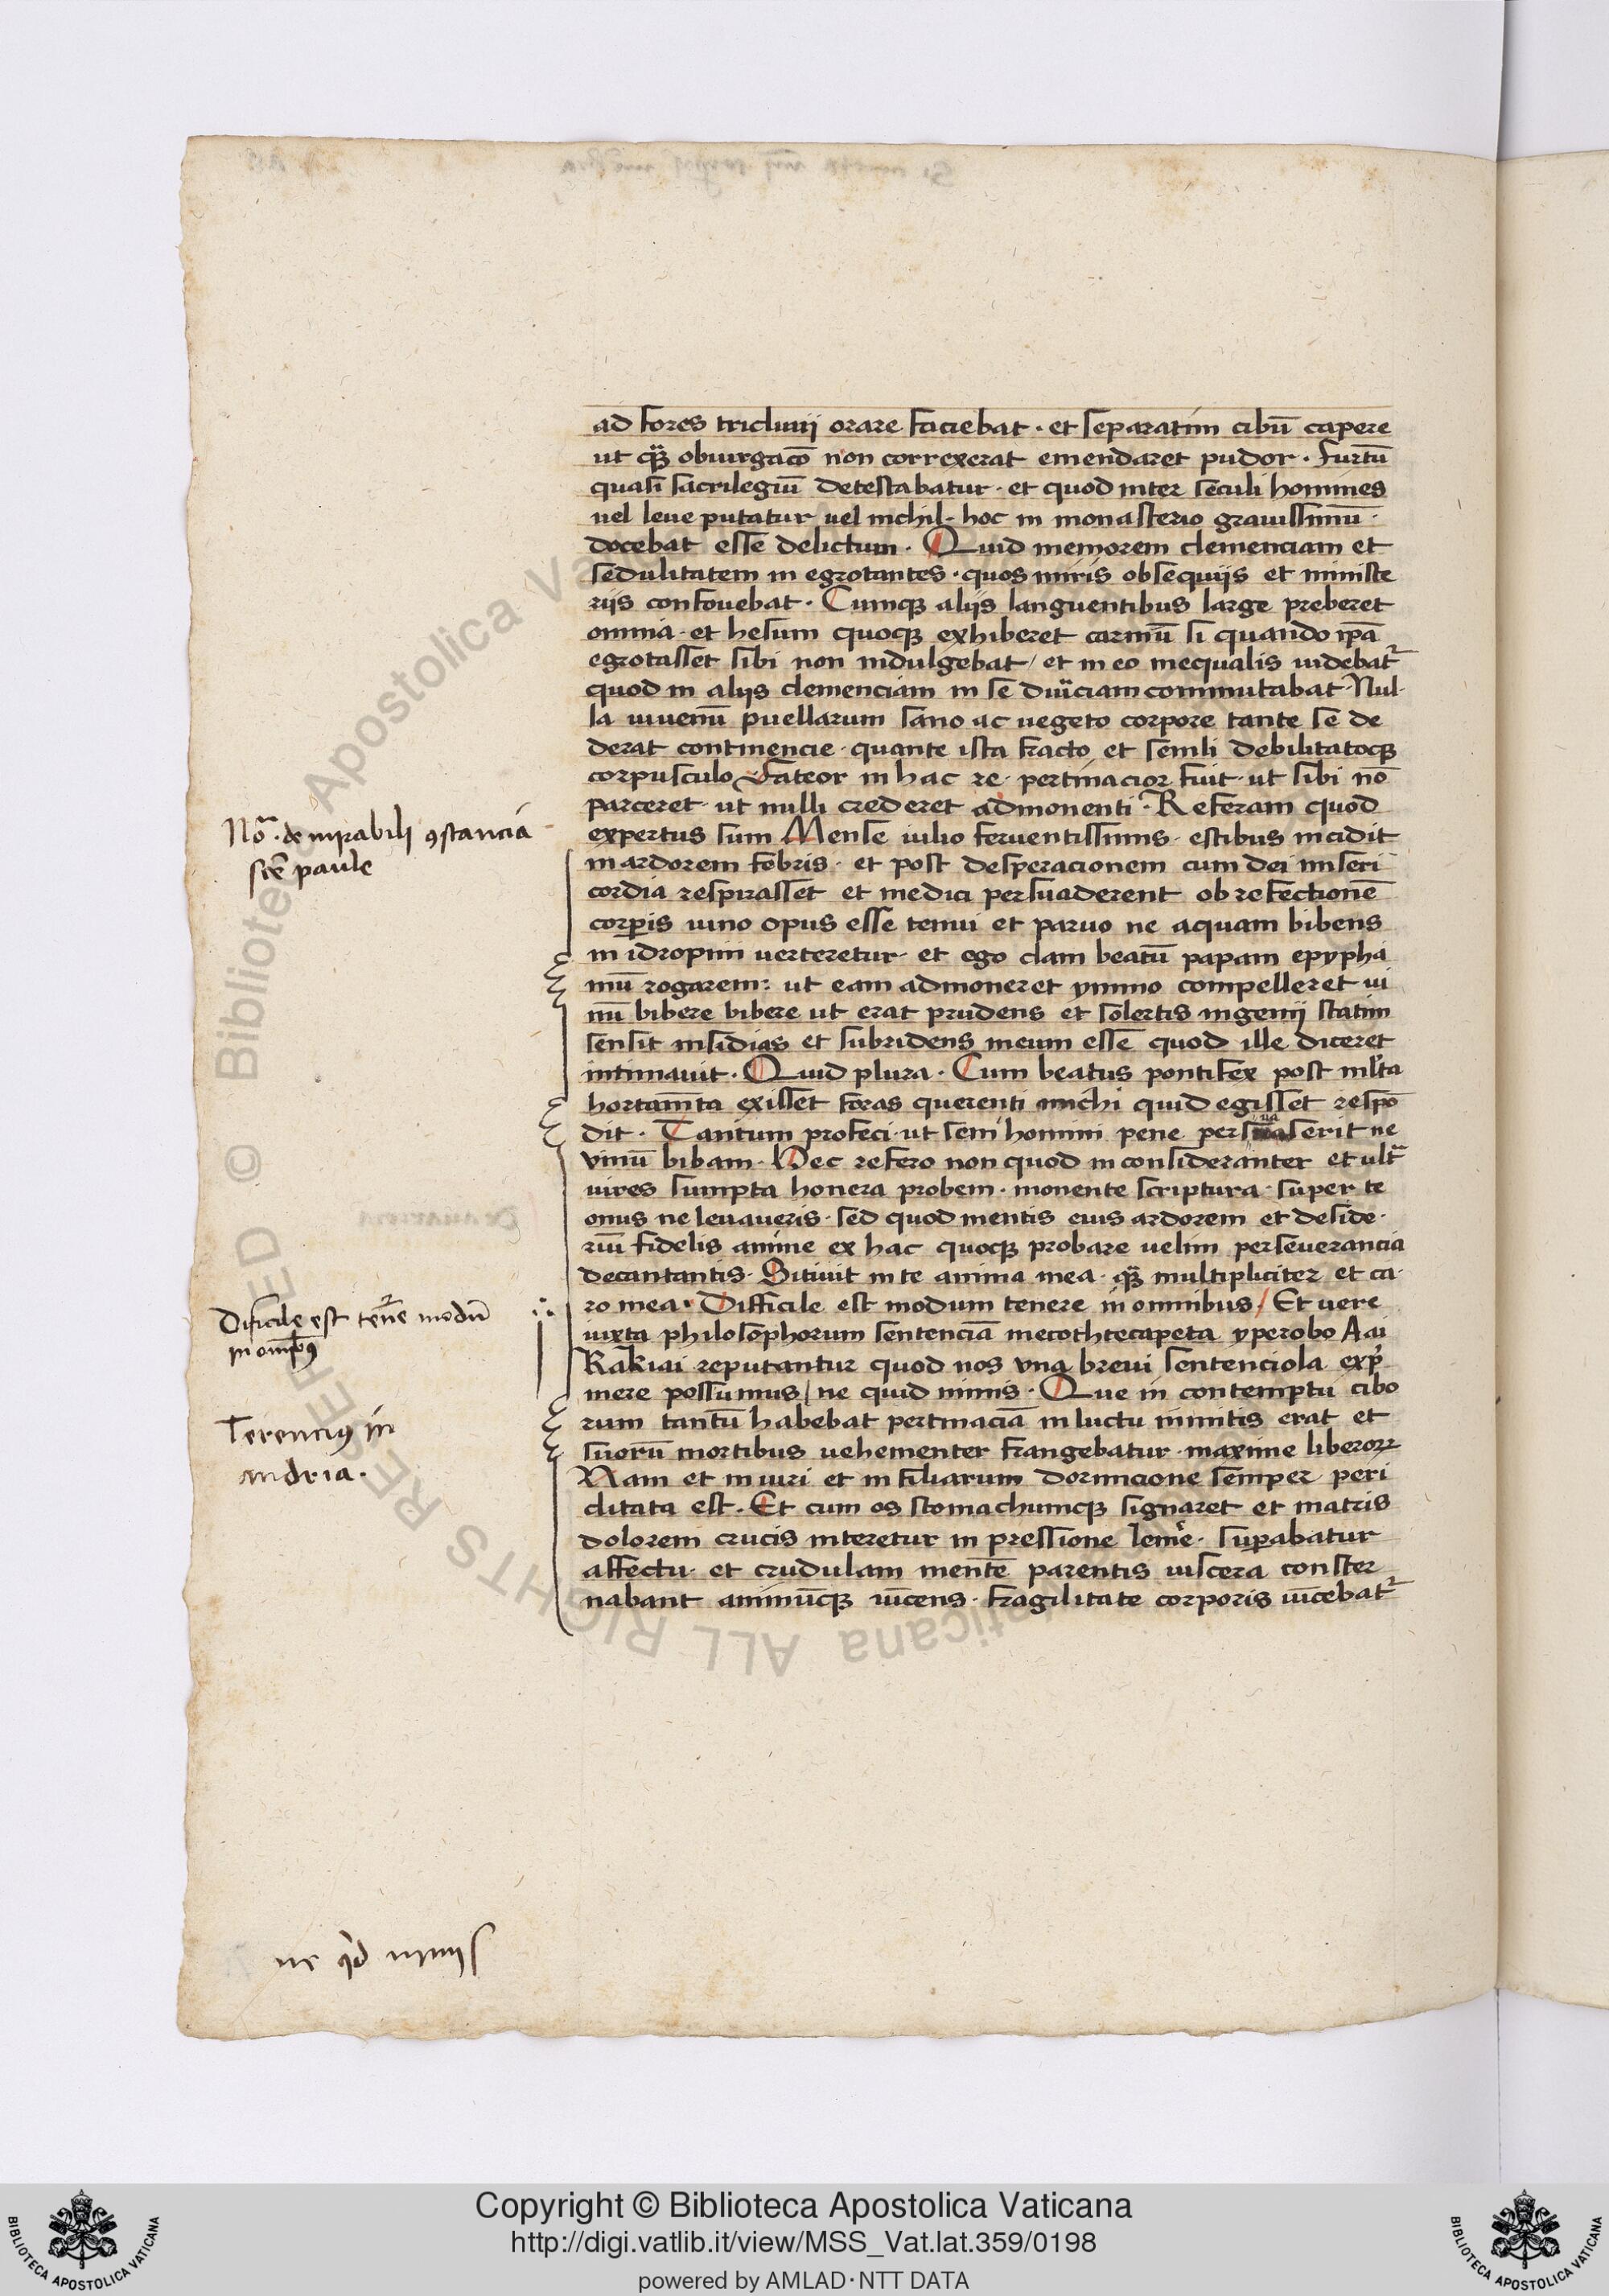 ad fores triclinij orare faciebat · et separatim cibū capere
ut q̄ obiurgac̄o non correxerat emendaret pudor · furtū
quasi sacrilegiū detestabatur · et quod inter seculi homines
uel leue putatur uel nichil · hoc in monasterio grauissimū ·
docebat esse delictum · Quid memorem clemenciam et
sedulitatem in egrotantes · quos miris obsequijs et ministe
rijs confouebat · Cumq; alijs languentibus large preberet
omnia · et hesum quoq; exhiberet carniū si quando ip̄a
egrotasset sibi non indulgebat / et in eo inequalis uidebat᷑
quod in alijs clemenciam in se duriciam commutabat · Nul-
la iuuenū puellarum sano ac uegeto corpore tante se de
derat continencie · quante ista fracto et senili debilitatoq;
corpusculo Fateor in hac re · pertinacior fuit · ut sibi nō
parceret · ut nulli crederet admonenti · Referam quod
expertus sum Mense iulio feruentissimis · estibus incidit
in ardorem febris · et post desperacionem cum dei miseri
cordia respirasset et medici persuaderent ob refectionē
corꝑis uino opus esse tenui et paruo ne aquam bibens
in idropim uerteretur · et ego clam beatū papam epypha
niū rogarem: ut eam admoneret ymmo compelleret ui
nū bibere bibere ut erat prudens et solertis ingenij statim
sensit insidias et subridens meum esse quod ille diceret
intimauit · Quid plura · Cum beatus pontifex post ml̄ta
hortam̄ta exisset foras querenti michi quid egisset respō
dit · Tantum profeci · ut seni homini pene persuaserit ne
vinū bibam · Hec refero non quod inconsideranter et ult᷑
uires sumpta honera probem · monente scriptura · super te
onus ne leuaueris · sed quod mentis eius ardorem et deside-
riū fidelis anime ex hac quoq; probare uelim perseuerancia
decantantis · Sitiuit in te anima mea · q̄ multipliciter et ca-
ro mea · Difficile est modum tenere in omnibus / Et uere
iuxta philosophorum sentenciā mecothtecapeta yperobo Aai
Rakiai reputantur quod nos vna breui sentenciola exp̄
mere possumus / ne quid nimis · Que in contemptu cibo
rum tantū habebat pertinaciā in luctu inmitis erat et
suorū mortibus vehementer frangebatur · maxime liberoꝝ
Nam et in uiri et in filiarum dormicione semper peri
clitata est · Et cum os stomachumq; signaret et matris
dolorem crucis niteretur in pressione lenire · suꝑabatur
affectu · et crudulam mentē parentis uiscera conster
nabant animūq; uīcens · fragilitate corporis uīcebat᷑
No᷑ · de mirabili ꝯstancia
scē paule
Dificile est ten̄e modū
in omībꝰ
Terenciꝰ in
andria ·
ne qͥd nimis
Copyright © Biblioteca Apostolica Vaticana
http://digi.vatlib.it/view/MSS_Vat.lat.359/0198
powered by AMLAD·NTT DATA
BIBLIOTECA APOSTOLICA VATICANA
BIBLIOTECA APOSTOLICA VATICANA